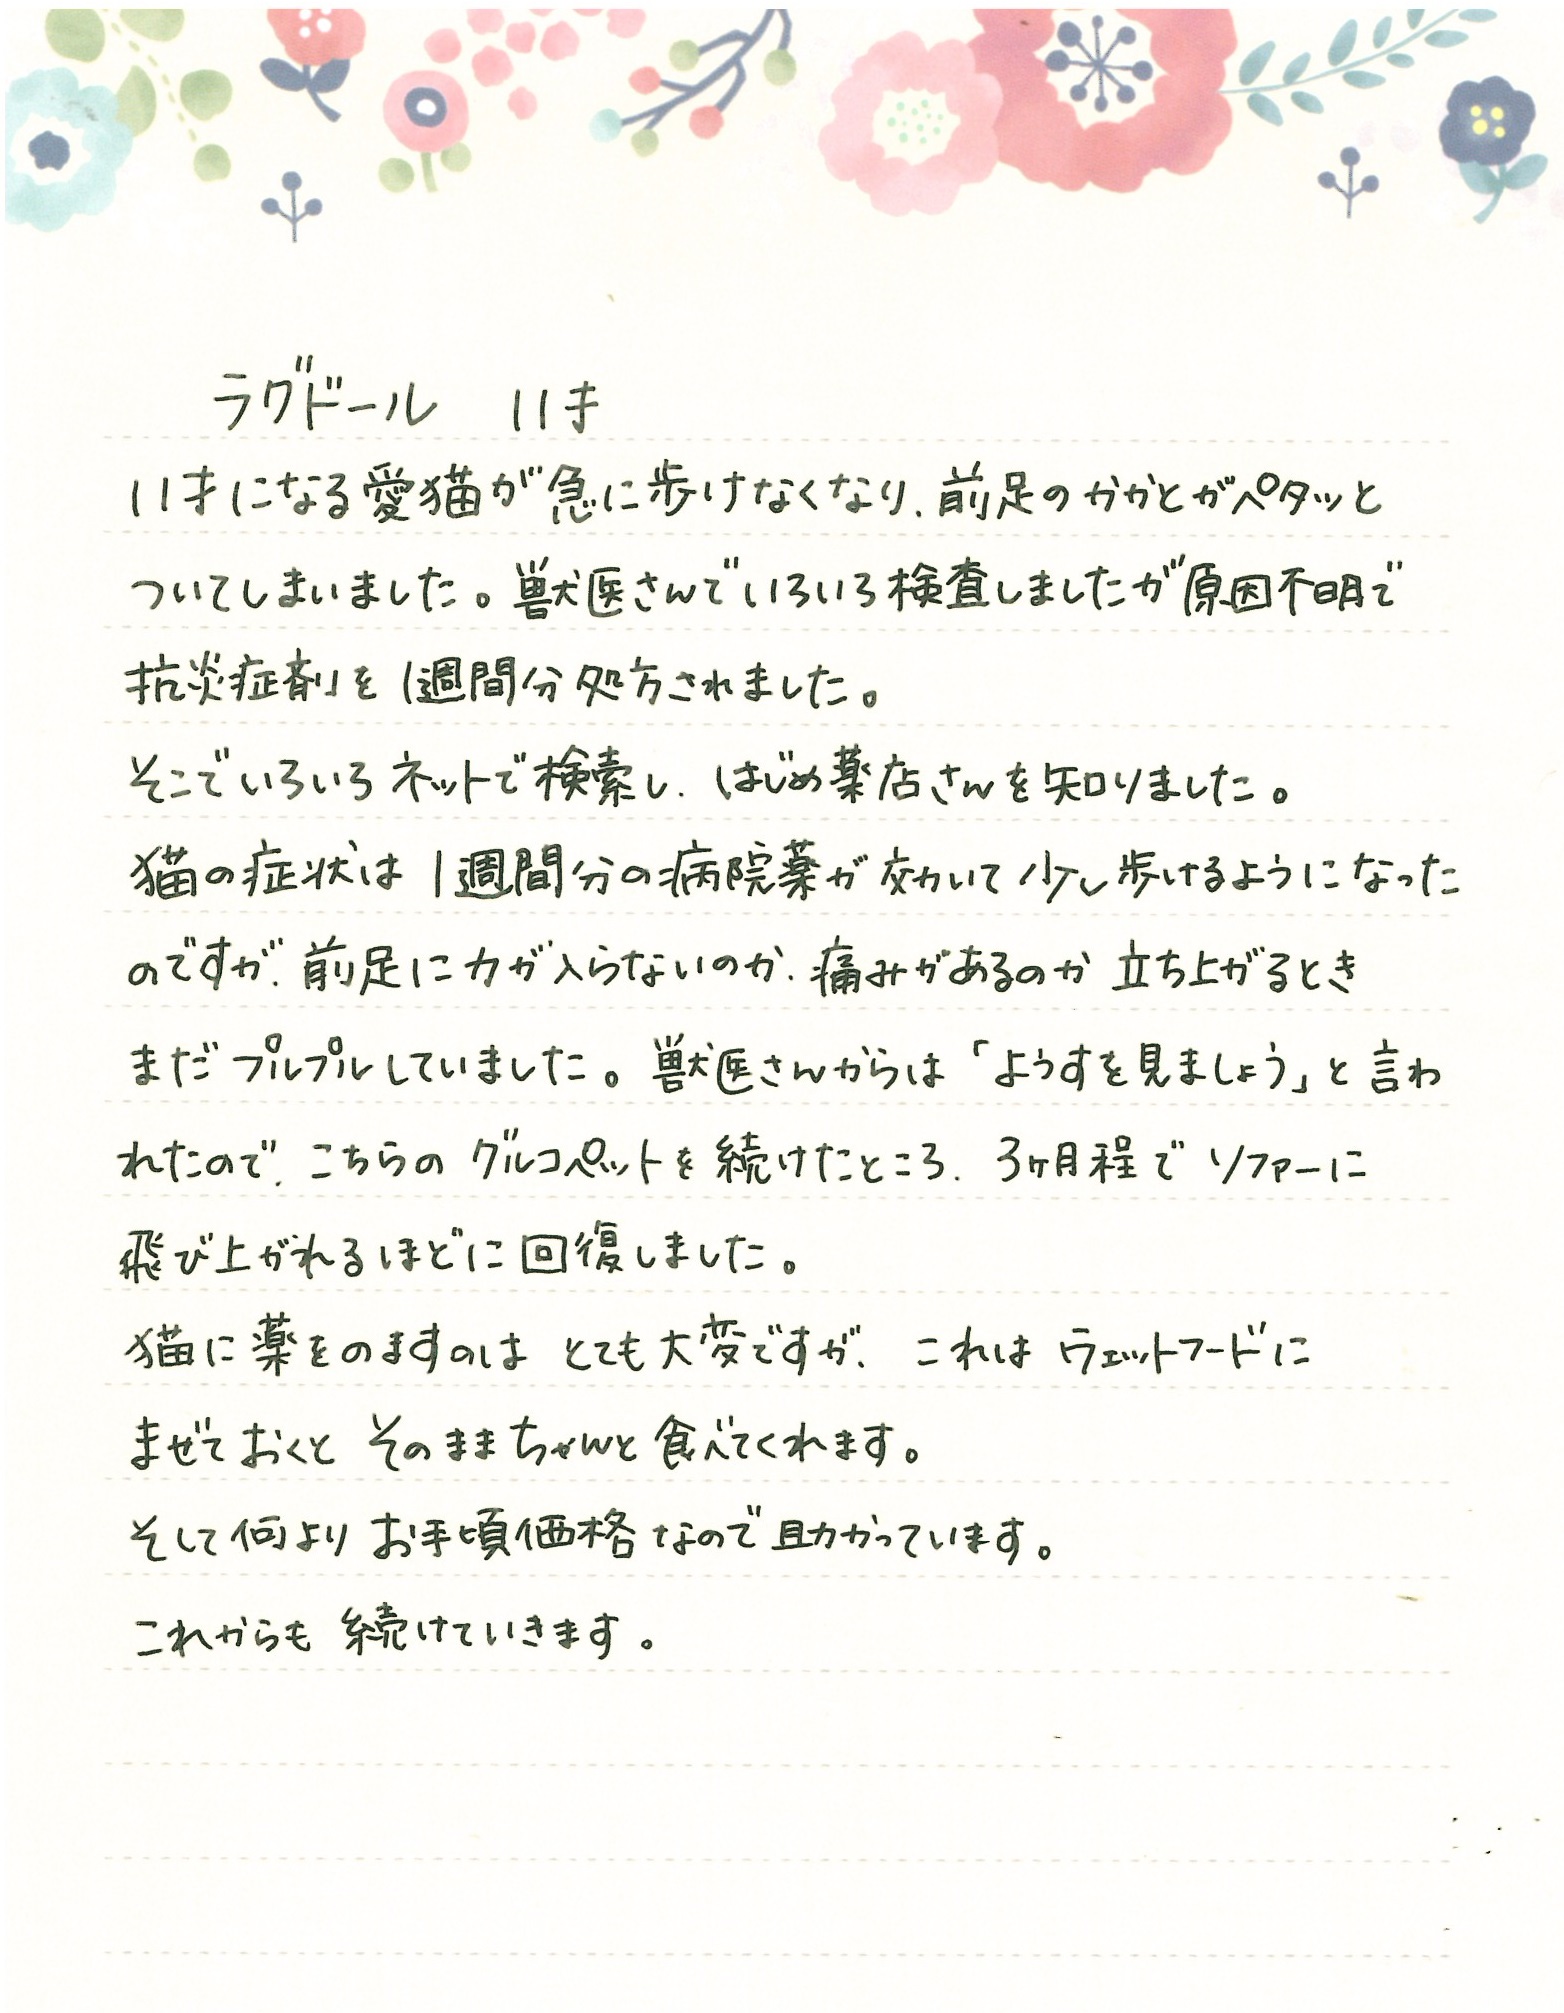 ラグドール　11才
11才になる愛猫が急に歩けなくなり、前足のかかとがペタッと
ついてしまいました。獣医さんでいろいろ検査しましたが原因不明で
抗炎症剤を1週間分処方されました。
そこでいろいろネットで検索し、はじめ薬店さんを知りました。
猫の症状は1週間分の病院薬が効いて少し歩けるようになった
のですが、前足に力が入らないのか、痛みがあるのか 立ち上がるとき
まだプルプルしていました。獣医さんからは「ようすを見ましょう」と言わ
れたので、こちらのグルコペットを続けたところ、3ヶ月程でソファーに
飛び上がれるほどに回復しました。
猫に薬をのますのは とても大変ですが、これは ウェットフードに
まぜておくと そのままちゃんと食べてくれます。
そして何より お手頃価格なので助かっています。
これからも 続けていきます。